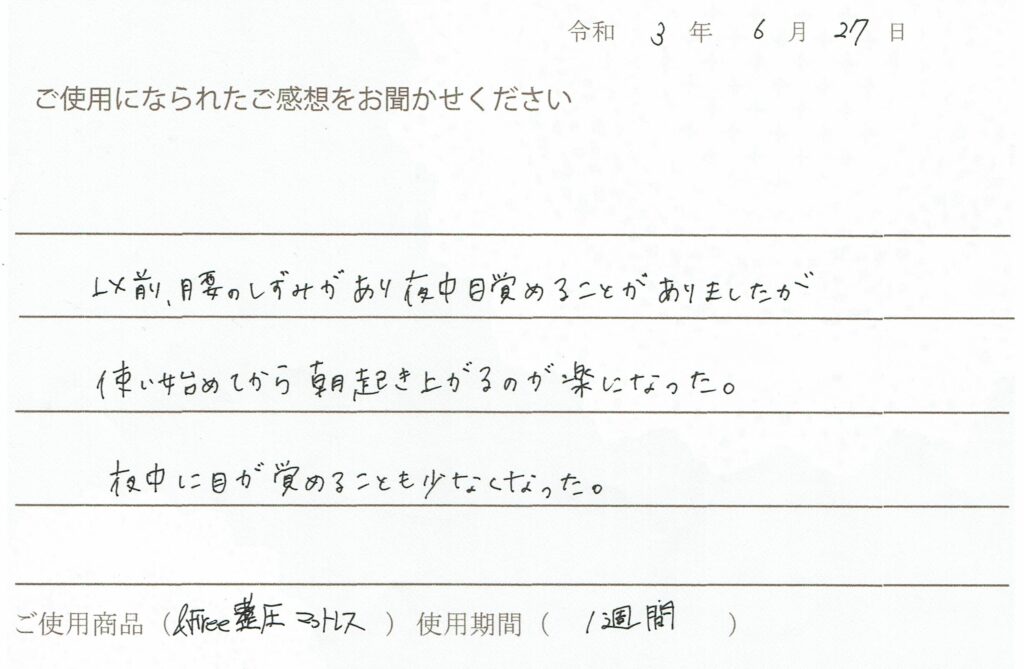 令和 3 年 6 月 27 日
ご使用になられたご感想をお聞かせください
以前、腰のしずみがあり夜中目覚めることがありましたが
使い始めてから朝起き上がるのが楽になった。
夜中に目が覚めることも少なくなった。
ご使用商品（&Free整圧マットレス） 使用期間（ 1週間 ）